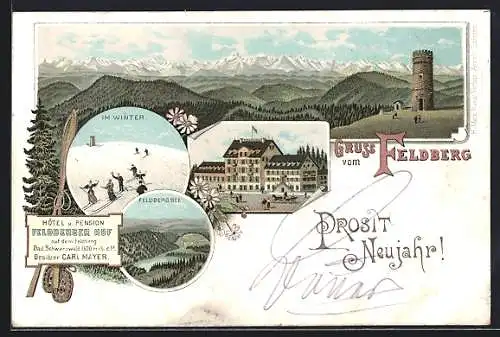 IM WINTER
GRUSS
vom
FELDBERG
FELDBERGSEE
HÔTEL u. PENSION
FELDBERGER HOF
auf dem Feldberg
Besitzer CARL MAYER.
PROSIT
Neujahr!